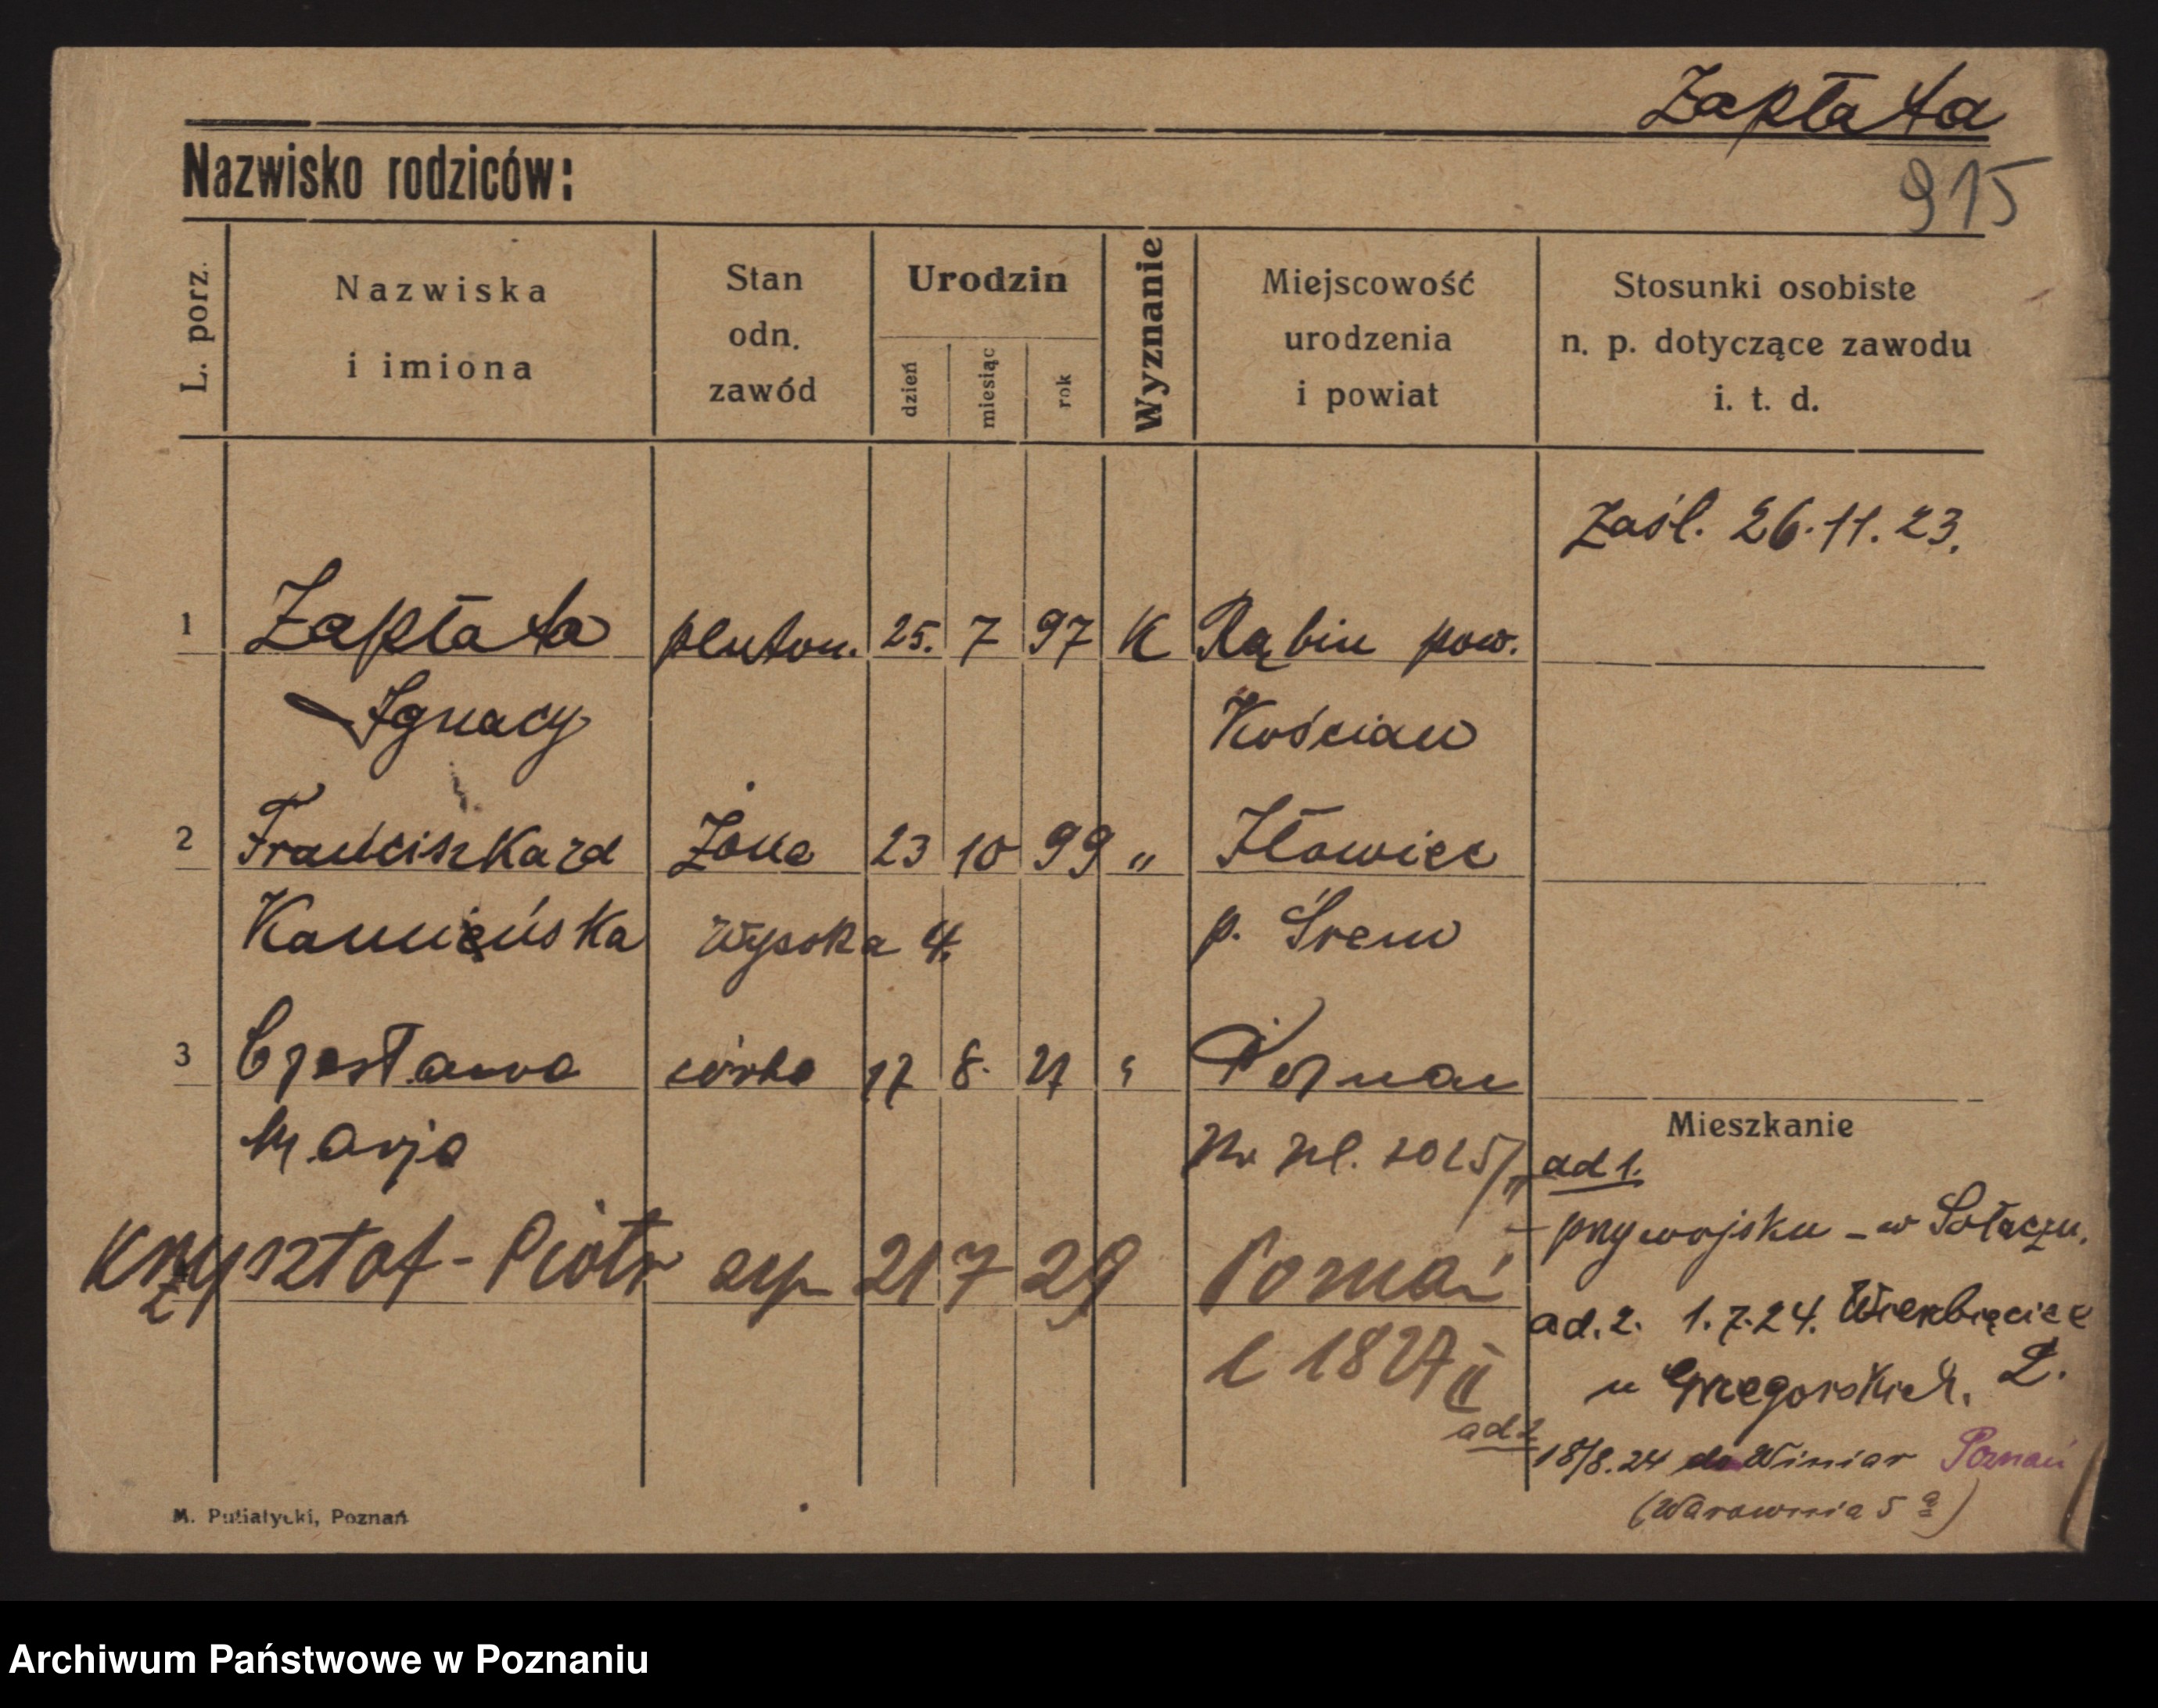 Zapłata
Nazwisko rodziców:
915
L. porz.
Nazwiska
i imiona
Stan
odn.
zawód
Urodzin
dzień
miesiąc
rok
Wyznanie
Miejscowość
urodzenia
i powiat
Stosunki osobiste
n. p. dotyczące zawodu
i. t. d.
Zaśl. 26.11.23.
1 Zapłata pluton. 25. 7 97 K Rąbin pow.
Ignacy Kościan
2 Franciszka zd żona 23 10 99 " Iłowiec
Kamieńska Wysoka 4. p. Śrem
3 Czesława córka 17 8. 27 " Poznań
Marja
Mieszkanie
ad 1.
przy wojsku - w Sołaczu.
Krzysztof - Piotr syn 21 7 29 Poznań
ad. 2. 1.7.24. Wierzbięcice
u Grzegorskich. 2.
ad 2
18/8.24 do Winiar Poznań
(Warownia 5 a)
M. Putiatycki, Poznań
Archiwum Państwowe w Poznaniu